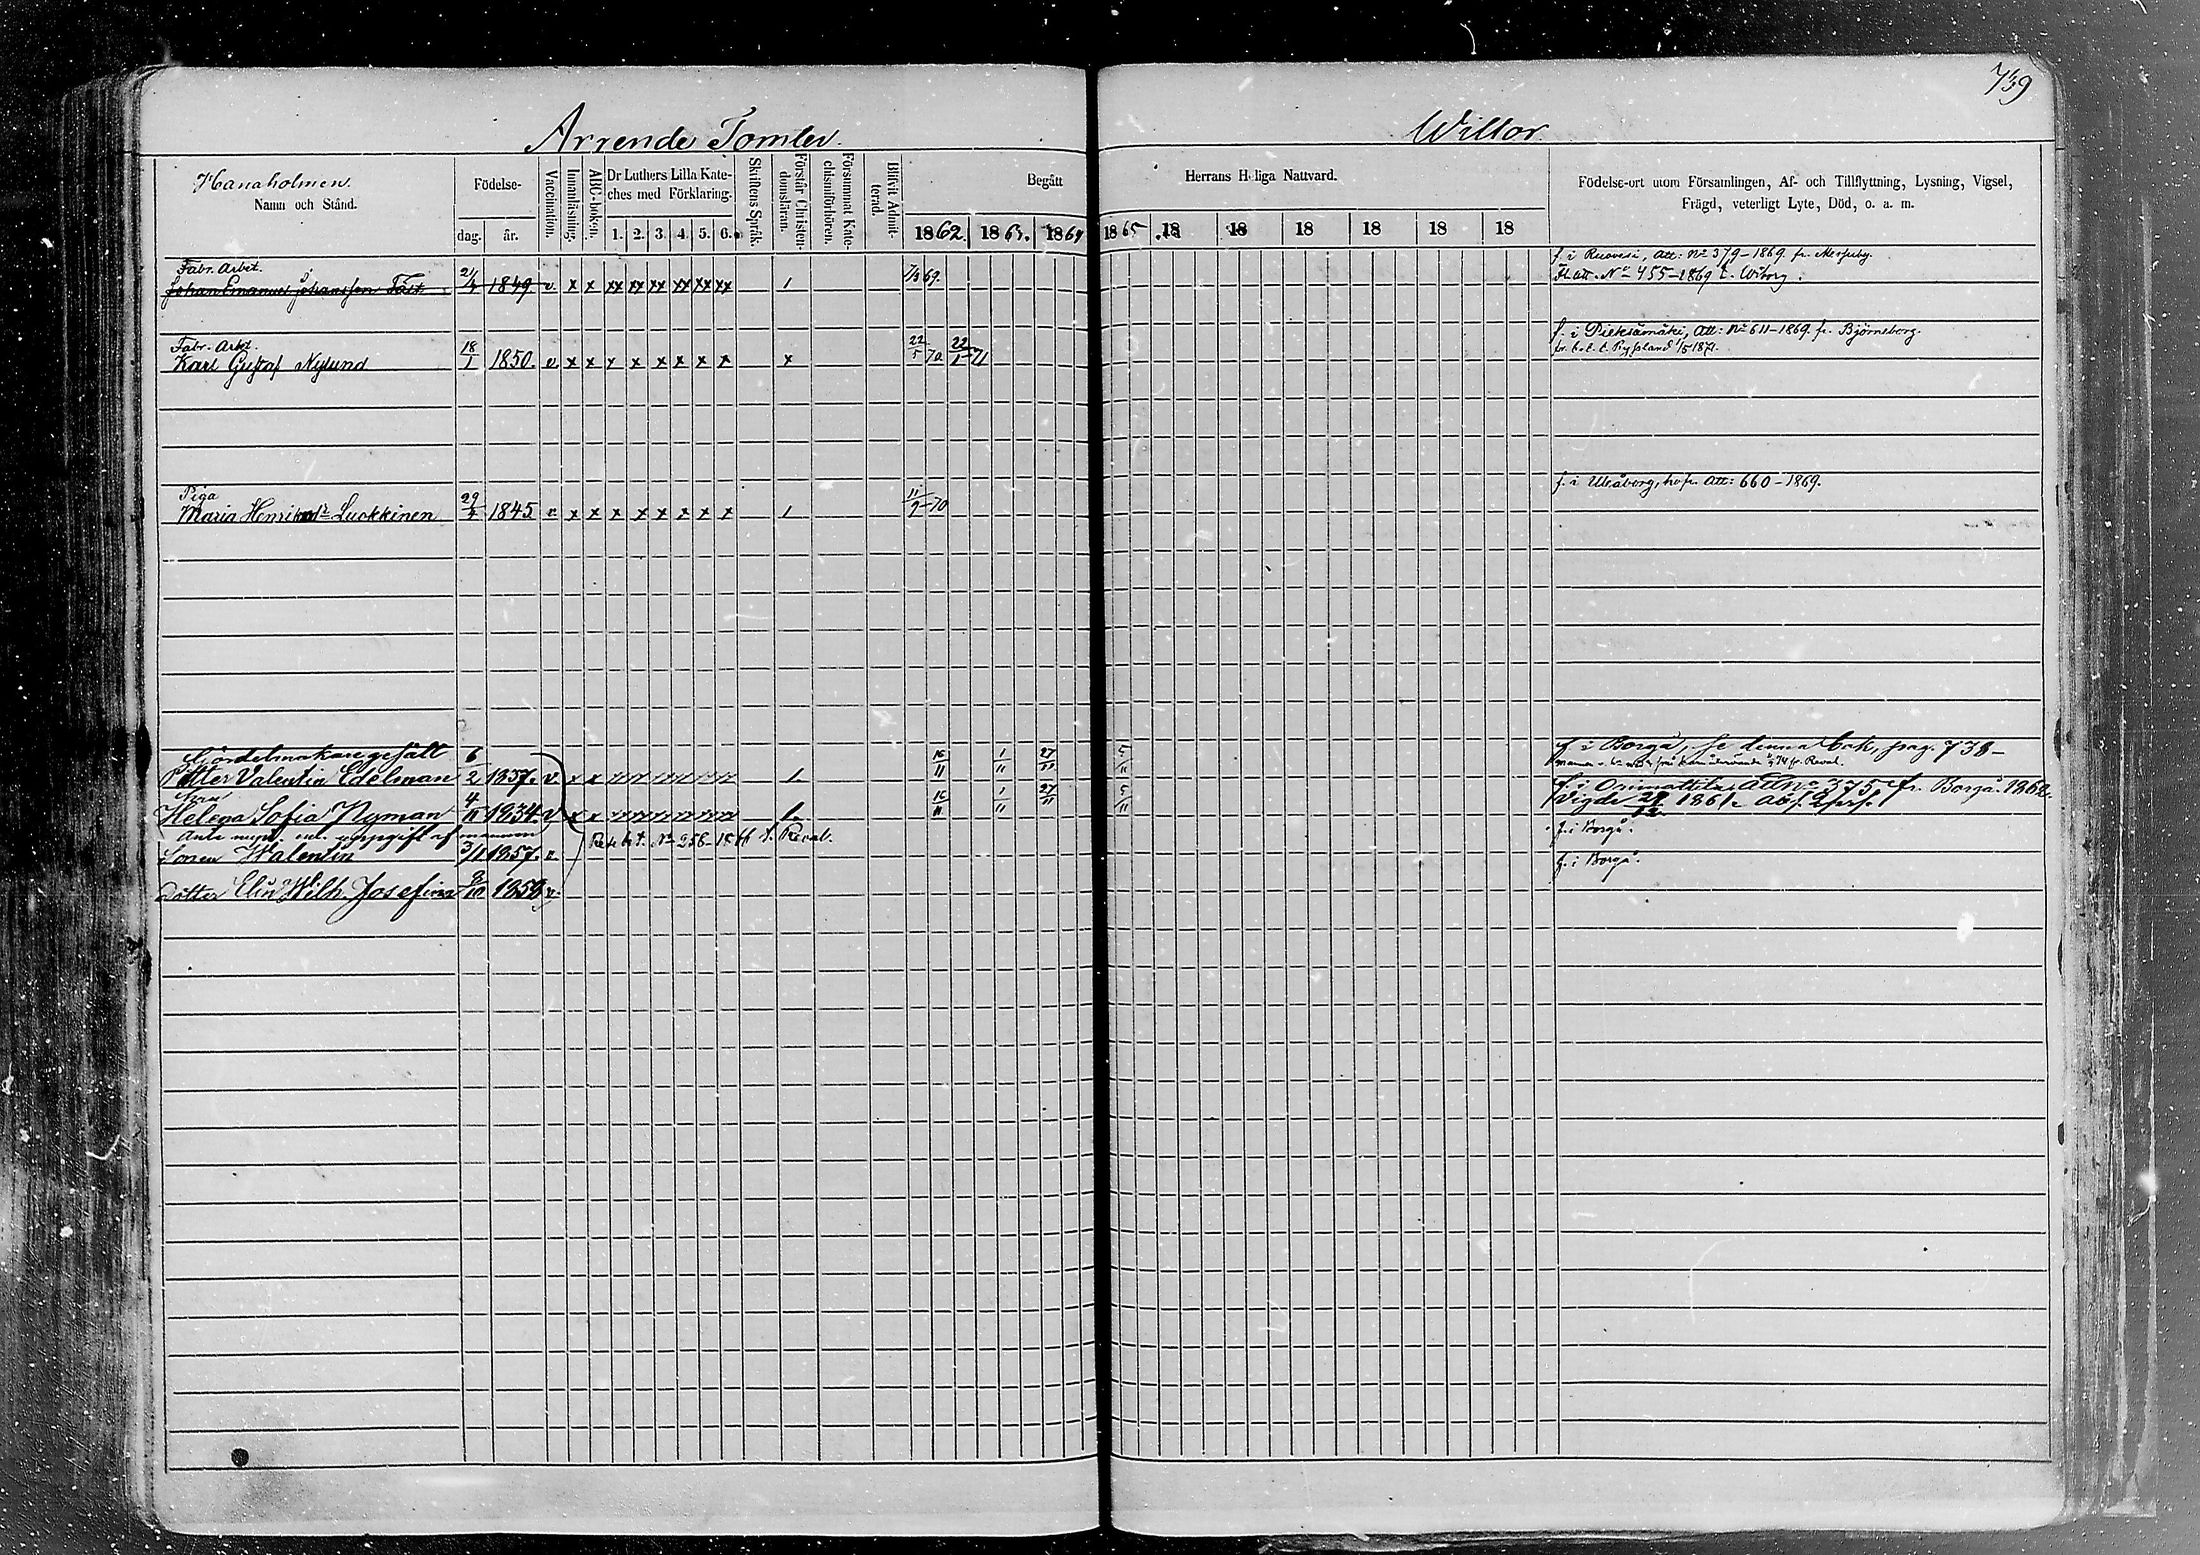 739
Arrende Tomter. Willor
Hanaholmen.
Namn och Stånd.
Födelse-
dag. år.
Vaccination.
Innanläsning.
ABC-boken.
Dr Luthers Lilla Kate-
ches med Förklaring.
1. 2. 3. 4. 5. 6.
Skriftens Språk.
Förstår Christen-
domsläran.
Försummat Kate-
chismiförhören.
Blifvit Admit-
terad.
Begått Herrans Heliga Nattvard.
1862. 1863. 1864 1865 18 18 18 18 18 18
Födelse-ort utom Församlingen, Af- och Tillflyttning, Lysning, Vigsel,
Frägd, veterligt Lyte, Död, o. a. m.
Fabr. Arbet. f. i Ruovesi, Att: No 379-1869. fr.
Johan Emanuel Johansson 21/4 1849 v. x x xx xx xx xx xx xx 1 7/3 69. Att. No 455-1869 t. Wiborg.
Fabr. Arbt. f. i Pieksämäki, Att: No 611-1869. fr. Björneborg.
Karl Gustaf Nylund 18/1 1850. v. x x x x x x x x x 22/5 70 22/1 71 t. Ryssland 1/5 1871.
Piga f. i Uleåborg, Att: 660-1869.
Maria Henriksdr Luokkinen 29/4 1845 v x x x x x x x x 1 11/9 70
gesäll 6 16/11 1/11 27/11 5/11 f. i Borgå, se denna bok, pag. 738
Petter Valentin Edelman 2 1837. v. x x 1 fr. Reval.
4 16/11 1/11 27/11 5/11 f. i Orimattila Att No 375 fr. Borgå. 1862.
Helena Sofia Nyman 11 1834 v x x 1 Vigde 29/12 1861.
uppgift af mannen Bet. No 258 t. Reval. f. i Borgå.
Sonen Walentin 3/11 1857. v.
f. i Borgå.
Dotter Elin Wilh. Josefina 1859 v.